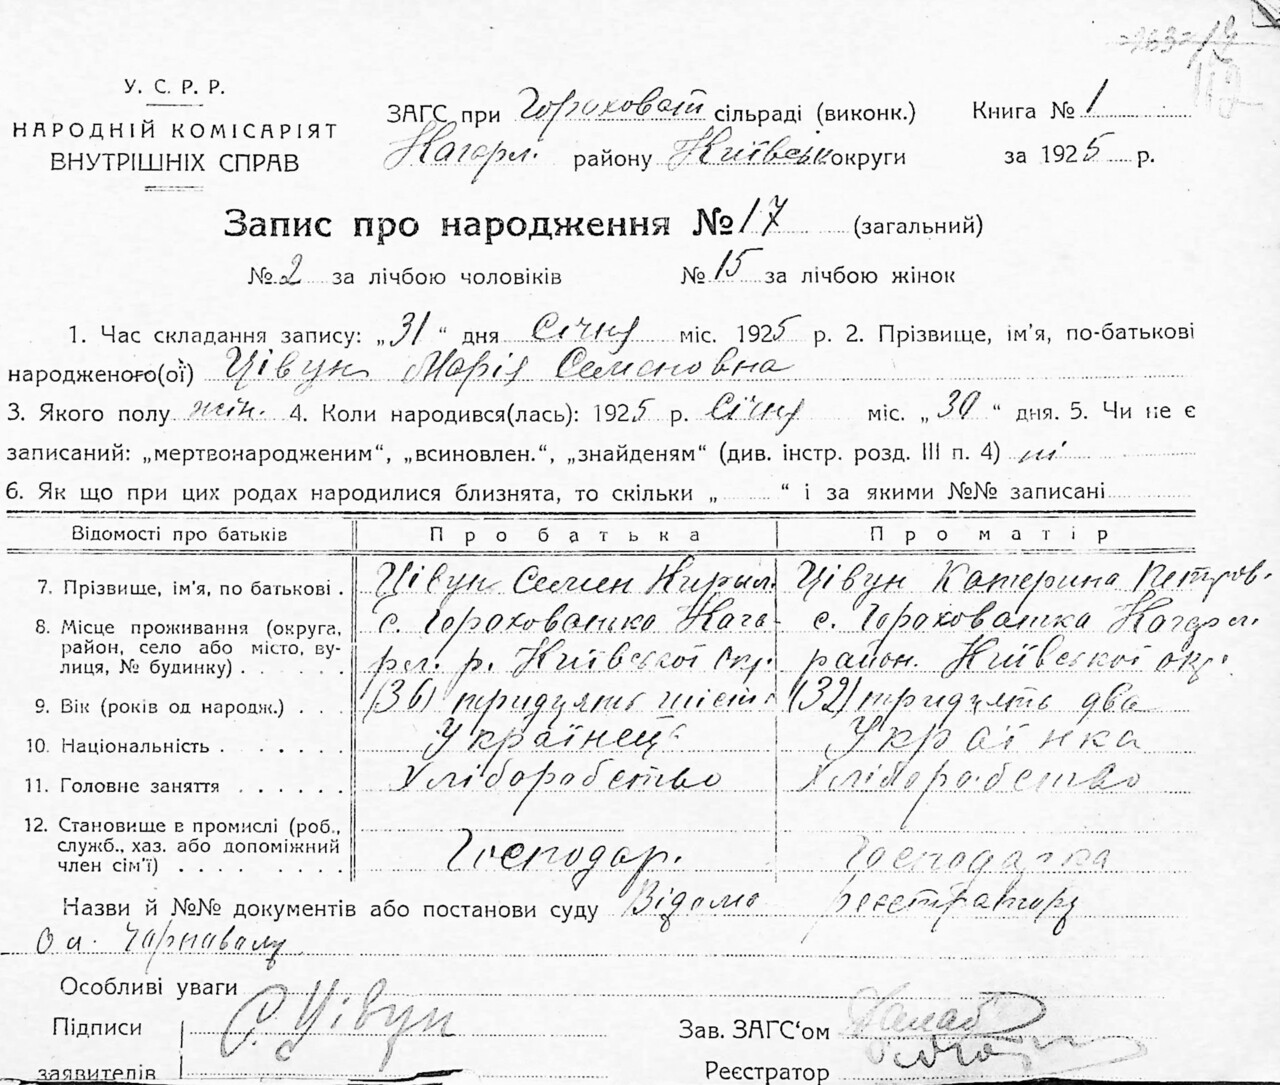 =263=/19
У. С. Р. Р.
НАРОДНІЙ КОМІСАРІЯТ
ВНУТРІШНІХ СПРАВ
ЗАГС при Гороховат сільраді (виконк.)
Книга № 1
Кагарл. району Київськ округи
за 1925 р.
Запис про народження № 17 (загальний)
№ 2 за лічбою чоловіків № 15 за лічбою жінок
1. Час складання запису: „31“ дня Січня міс. 1925 р. 2. Прізвище, ім’я, по-батькові
народженого(ої) Цівун Марія Семеновна
3. Якого полу жін. 4. Коли народився(лась): 1925 р. Січня міс. „30“ дня. 5. Чи не є
записаний: „мертвонародженим“, „всиновлен.“, „знайденям“ (див. інстр. розд. III п. 4) ні
6. Як що при цих родах народилися близнята, то скільки „ “ і за якими №№ записані
Відомості про батьків Про батька Про матір
7. Прізвище, ім’я, по батькові . Цівун Семен Кирил. Цівун Катерина Петров.
8. Місце проживання (округа, с. Гороховатка Кага- с. Гороховатка Кагарл.
район, село або місто, ву-
лиця, № будинку) . . . . . . рл. р. Київської окр. район. Київської окр.
9. Вік (років од народж.) . . . (36) тридцять шість (32) тридцять два
10. Національність . . . . . . Українець Українка
11. Головне заняття . . . . . . Хліборобство Хліборобство
12. Становище в промислі (роб.,
служб., хаз. або допоміжний Господар. Господарка
член сім’ї) . . . . . . . .
Назви й №№ документів або постанови суду Відомо реєстратору
Особливі уваги
Підписи С. Цівун Зав. ЗАГС‘ом
заявителів Реєстратор